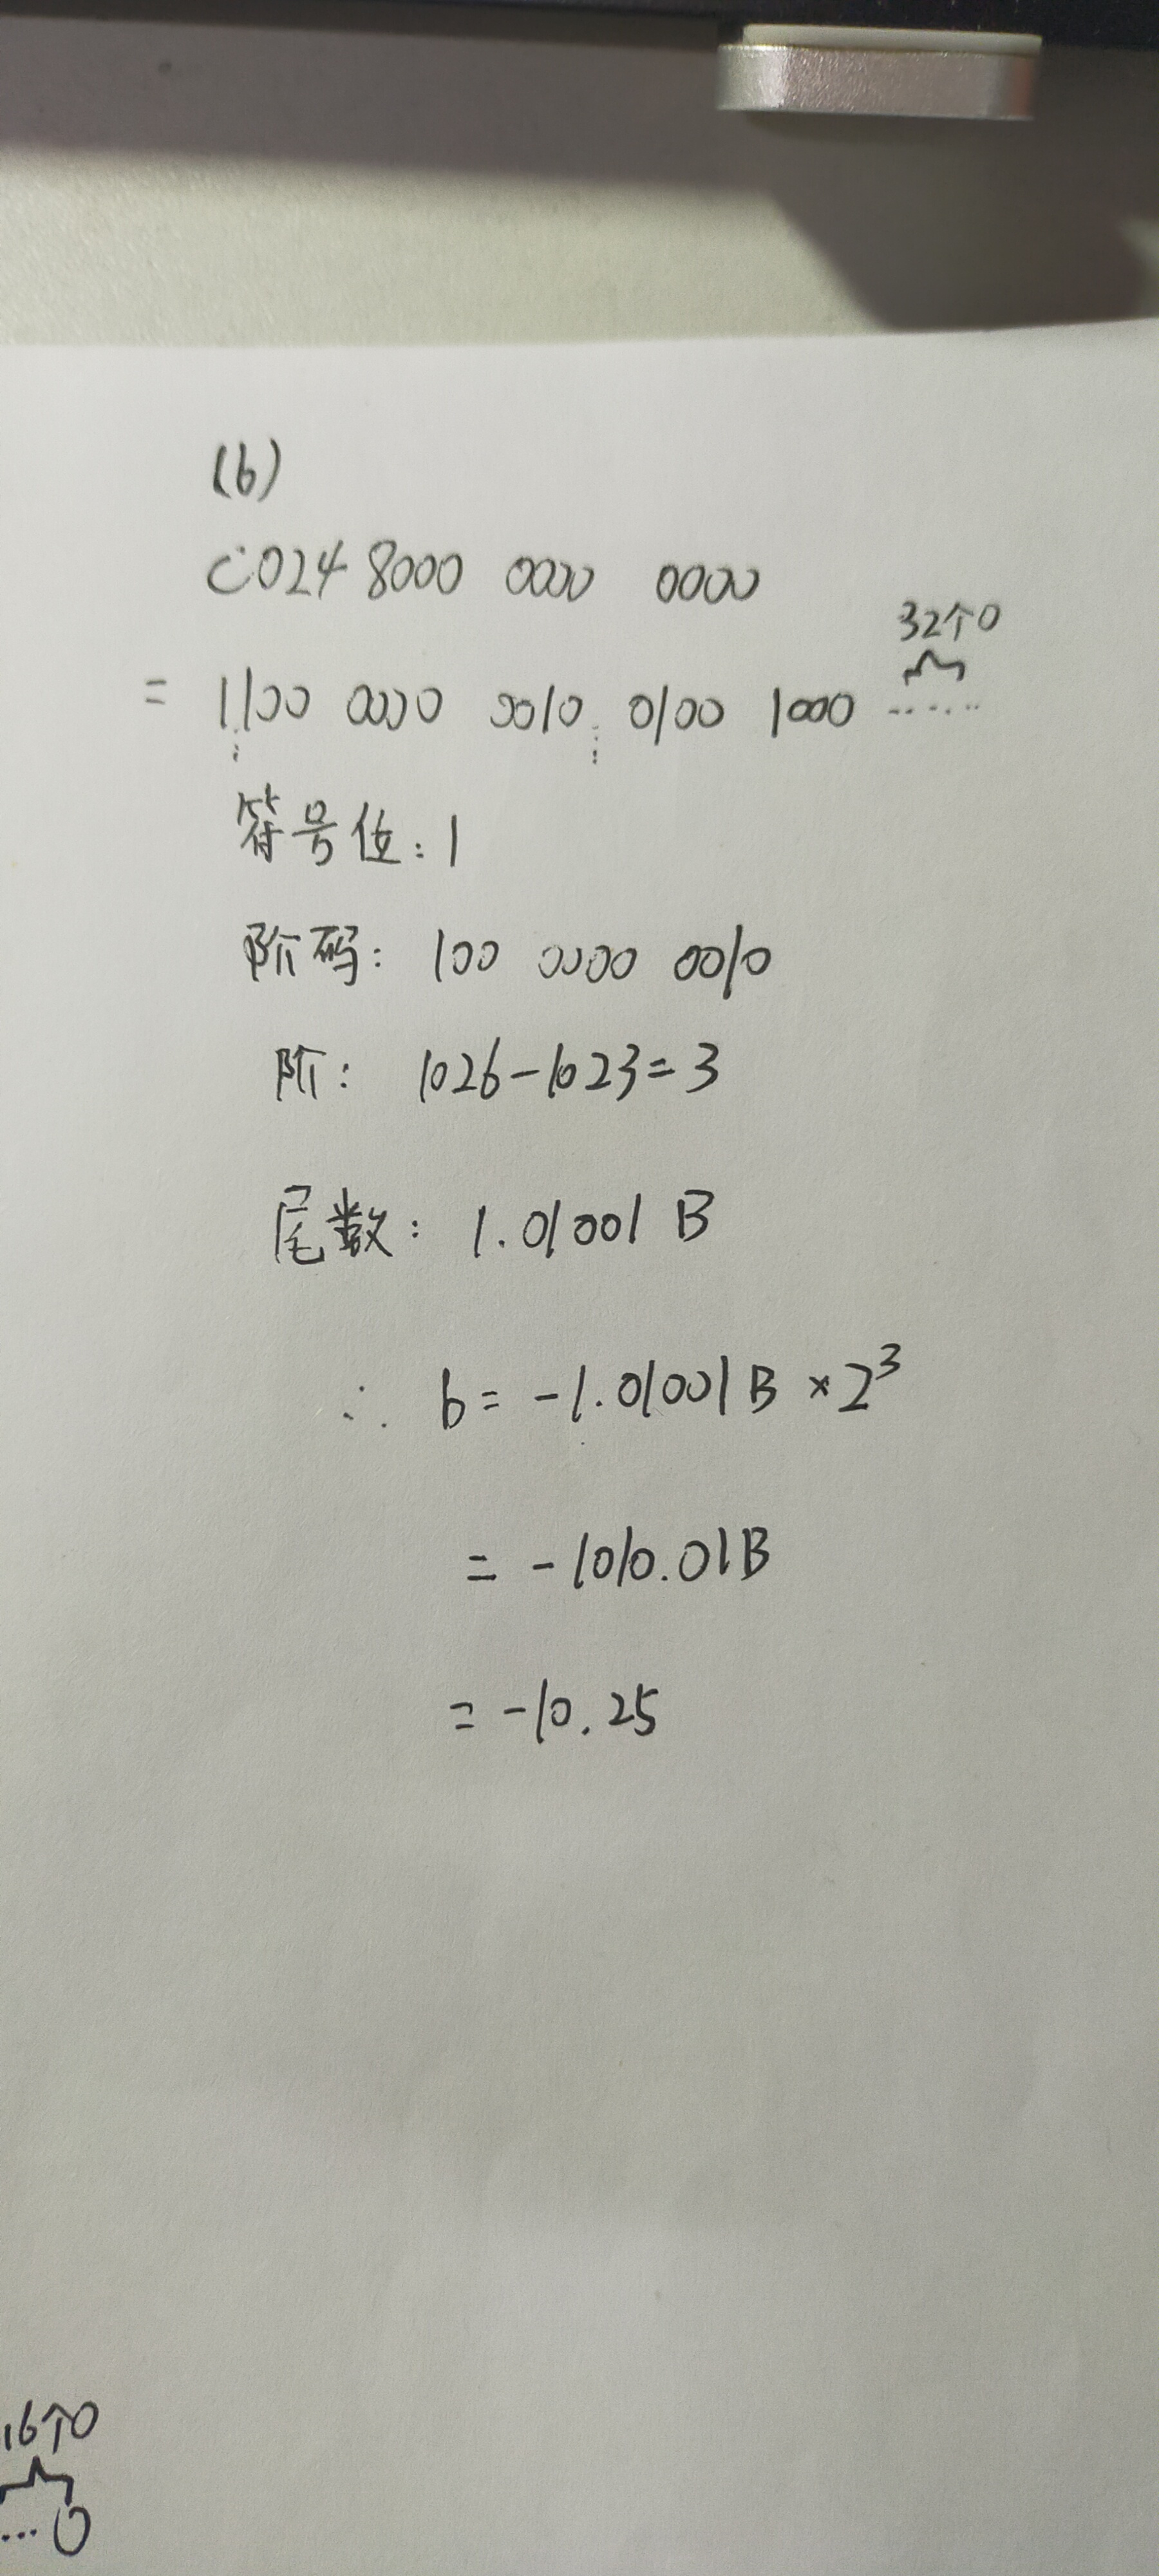 (b)
C024 8000 0000 0000
32个0
= 1100 0000 0010 0100 1000 ......
符号位: 1
阶码: 100 0000 0010
阶: 1026-1023=3
尾数: 1.01001 B
∴ b= -1.01001B × 2³
= -1010.01B
= -10.25
16个0
...0